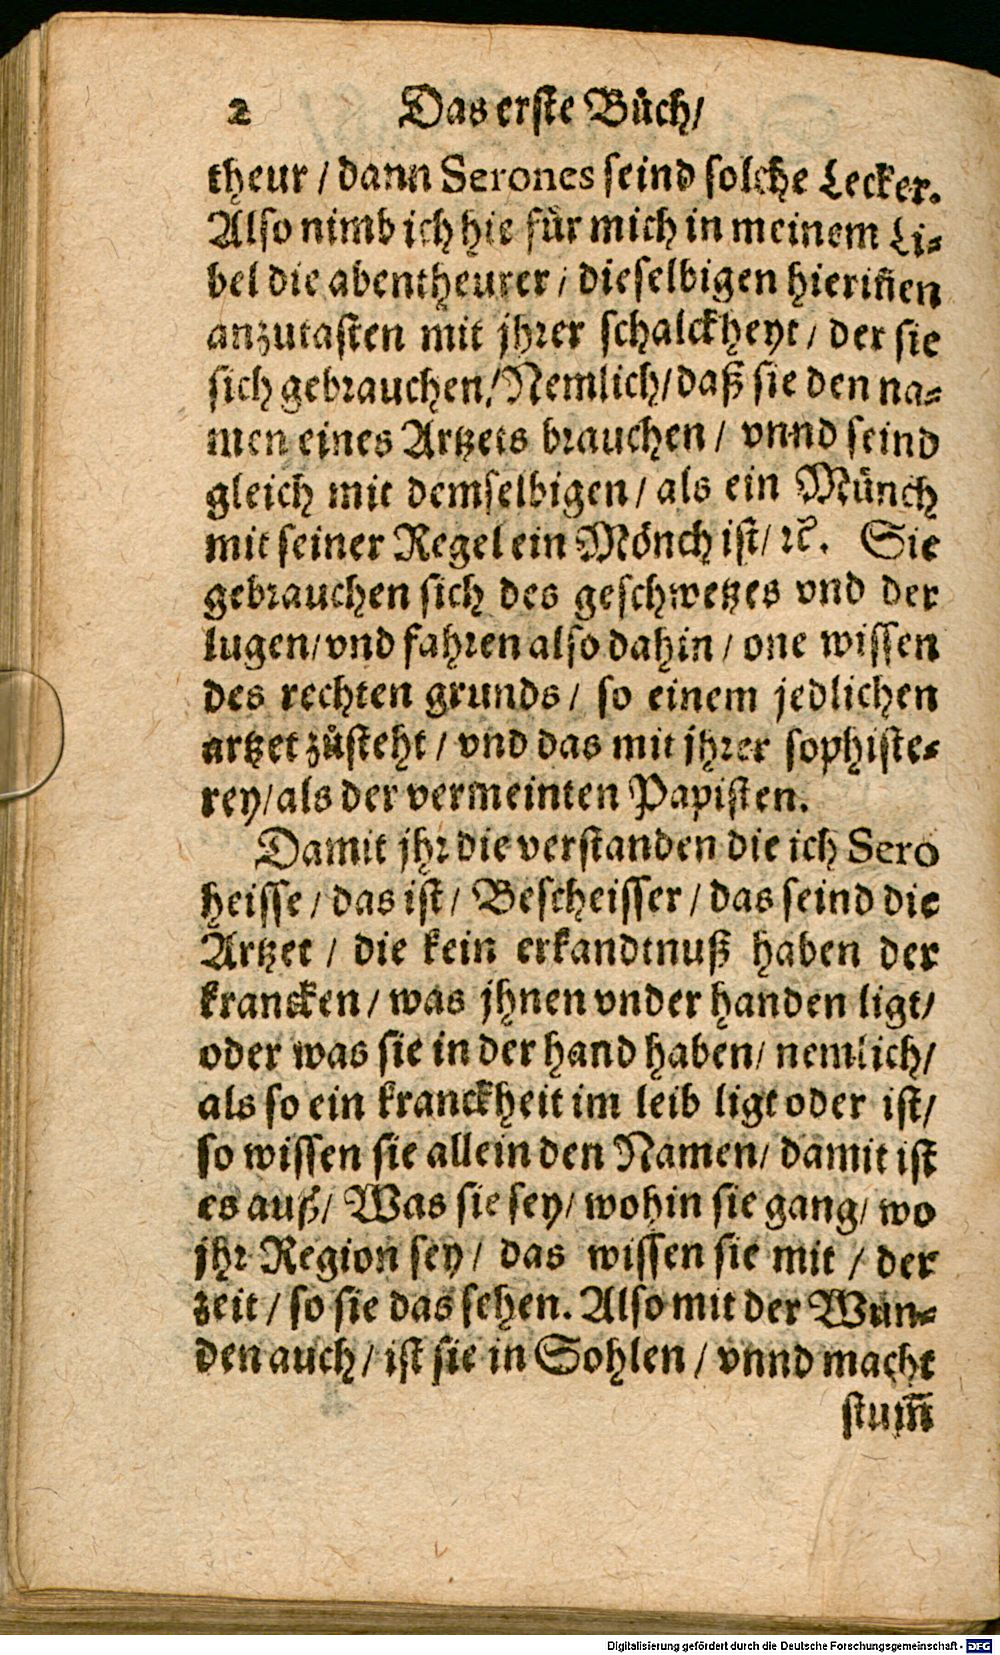 2 Das erste Bůch/
theur / dann Serones seind solche Lecker.
Also nimb ich hie für mich in meinem Li⸗
bel die abentheurer / dieselbigen hierin̄en
anzutasten mit jhrer schalckheyt / der sie
sich gebrauchen/ Nemlich/ daß sie den na⸗
men eines Artzets brauchen / vnnd seind
gleich mit demselbigen / als ein Münch
mit seiner Regel ein Mönch ist/ ꝛc. Sie
gebrauchen sich des geschwetzes vnd der
lugen/ vnd fahren also dahin / one wissen
des rechten grunds / so einem jedlichen
artzet zůsteht / vnd das mit jhrer sophiste⸗
rey/ als der vermeinten Papisten.
Damit jhr die verstanden die ich Sero
heisse / das ist / Bescheisser / das seind die
Artzet / die kein erkandtnuß haben der
krancken / was jhnen vnder handen ligt/
oder was sie in der hand haben/ nemlich/
als so ein kranckheit im leib ligt oder ist/
so wissen sie allein den Namen/ damit ist
es auß/ Was sie sey/ wohin sie gang/ wo
jhr Region sey / das wissen sie mit / der
zeit / so sie das sehen. Also mit der Wun⸗
den auch / ist sie in Sohlen / vnnd macht
stum̄
Digitalisierung gefördert durch die Deutsche Forschungsgemeinschaft - DFG